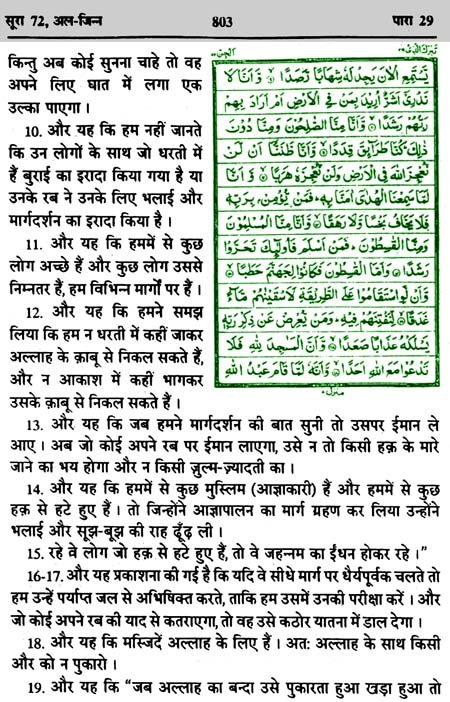 सूरा 72, अल-जिन्न 803 पारा 29
किन्तु अब कोई सुनना चाहे तो वह
अपने लिए घात में लगा एक
उल्का पाएगा।
10. और यह कि हम नहीं जानते
कि उन लोगों के साथ जो धरती में
हैं बुराई का इरादा किया गया है या
उनके रब ने उनके लिए भलाई और
मार्गदर्शन का इरादा किया है।
11. और यह कि हममें से कुछ
लोग अच्छे हैं और कुछ लोग उससे
निम्नतर हैं, हम विभिन्न मार्गों पर हैं।
12. और यह कि हमने समझ
लिया कि हम न धरती में कहीं जाकर
अल्लाह के क़ाबू से निकल सकते हैं,
और न आकाश में कहीं भागकर
उसके क़ाबू से निकल सकते हैं।
تبرك الذى الجن
يَّسْتَمِعِ الْاٰنَ يَجِدْ لَهٗ شِهَابًا رَّصَدًا ۙ وَّاَنَّا لَا
نَدْرِيْٓ اَشَرٌّ اُرِيْدَ بِمَنْ فِي الْاَرْضِ اَمْ اَرَادَ بِهِمْ
رَبُّهُمْ رَشَدًا ۙ وَّاَنَّا مِنَّا الصّٰلِحُوْنَ وَمِنَّا دُوْنَ
ذٰلِكَ كُنَّا طَرَآئِقَ قِدَدًا ۙ وَّاَنَّا ظَنَنَّآ اَنْ لَّنْ
نُّعْجِزَ اللّٰهَ فِي الْاَرْضِ وَلَنْ نُّعْجِزَهٗ هَرَبًا ۙ وَّاَنَّا
لَمَّا سَمِعْنَا الْهُدٰٓى اٰمَنَّا بِهٖ ؕ فَمَنْ يُّؤْمِنْۢ بِرَبِّهٖ
فَلَا يَخَافُ بَخْسًا وَّلَا رَهَقًا ۙ وَّاَنَّا مِنَّا الْمُسْلِمُوْنَ
وَمِنَّا الْقٰسِطُوْنَ ؕ فَمَنْ اَسْلَمَ فَاُولٰٓئِكَ تَحَرَّوْا
رَشَدًا وَاَمَّا الْقٰسِطُوْنَ فَكَانُوْا لِجَهَنَّمَ حَطَبًا ۙ
وَّاَنْ لَّوِ اسْتَقَامُوْا عَلَى الطَّرِيْقَةِ لَاَسْقَيْنٰهُمْ مَّآءً
غَدَقًا ۙ لِّنَفْتِنَهُمْ فِيْهِ ؕ وَمَنْ يُّعْرِضْ عَنْ ذِكْرِ رَبِّهٖ
يَسْلُكْهُ عَذَابًا صَعَدًا ۙ وَّاَنَّ الْمَسٰجِدَ لِلّٰهِ فَلَا
تَدْعُوْا مَعَ اللّٰهِ اَحَدًا ۙ وَّاَنَّهٗ لَمَّا قَامَ عَبْدُ اللّٰهِ
منزل
13. और यह कि जब हमने मार्गदर्शन की बात सुनी तो उसपर ईमान ले
आए। अब जो कोई अपने रब पर ईमान लाएगा, उसे न तो किसी हक़ के मारे
जाने का भय होगा और न किसी ज़ुल्म-ज़्यादती का।
14. और यह कि हममें से कुछ मुस्लिम (आज्ञाकारी) हैं और हममें से कुछ
हक़ से हटे हुए हैं। तो जिन्होंने आज्ञापालन का मार्ग ग्रहण कर लिया उन्होंने
भलाई और सूझ-बूझ की राह ढूँढ़ ली।
15. रहे वे लोग जो हक़ से हटे हुए हैं, तो वे जहन्नम का ईंधन होकर रहे।”
16-17. और यह प्रकाशना की गई है कि यदि वे सीधे मार्ग पर धैर्यपूर्वक चलते तो
हम उन्हें पर्याप्त जल से अभिषिक्त करते, ताकि हम उसमें उनकी परीक्षा करें। और
जो कोई अपने रब की याद से कतराएगा, तो वह उसे कठोर यातना में डाल देगा।
18. और यह कि मस्जिदें अल्लाह के लिए हैं। अतः अल्लाह के साथ किसी
और को न पुकारो।
19. और यह कि “जब अल्लाह का बन्दा उसे पुकारता हुआ खड़ा हुआ तो